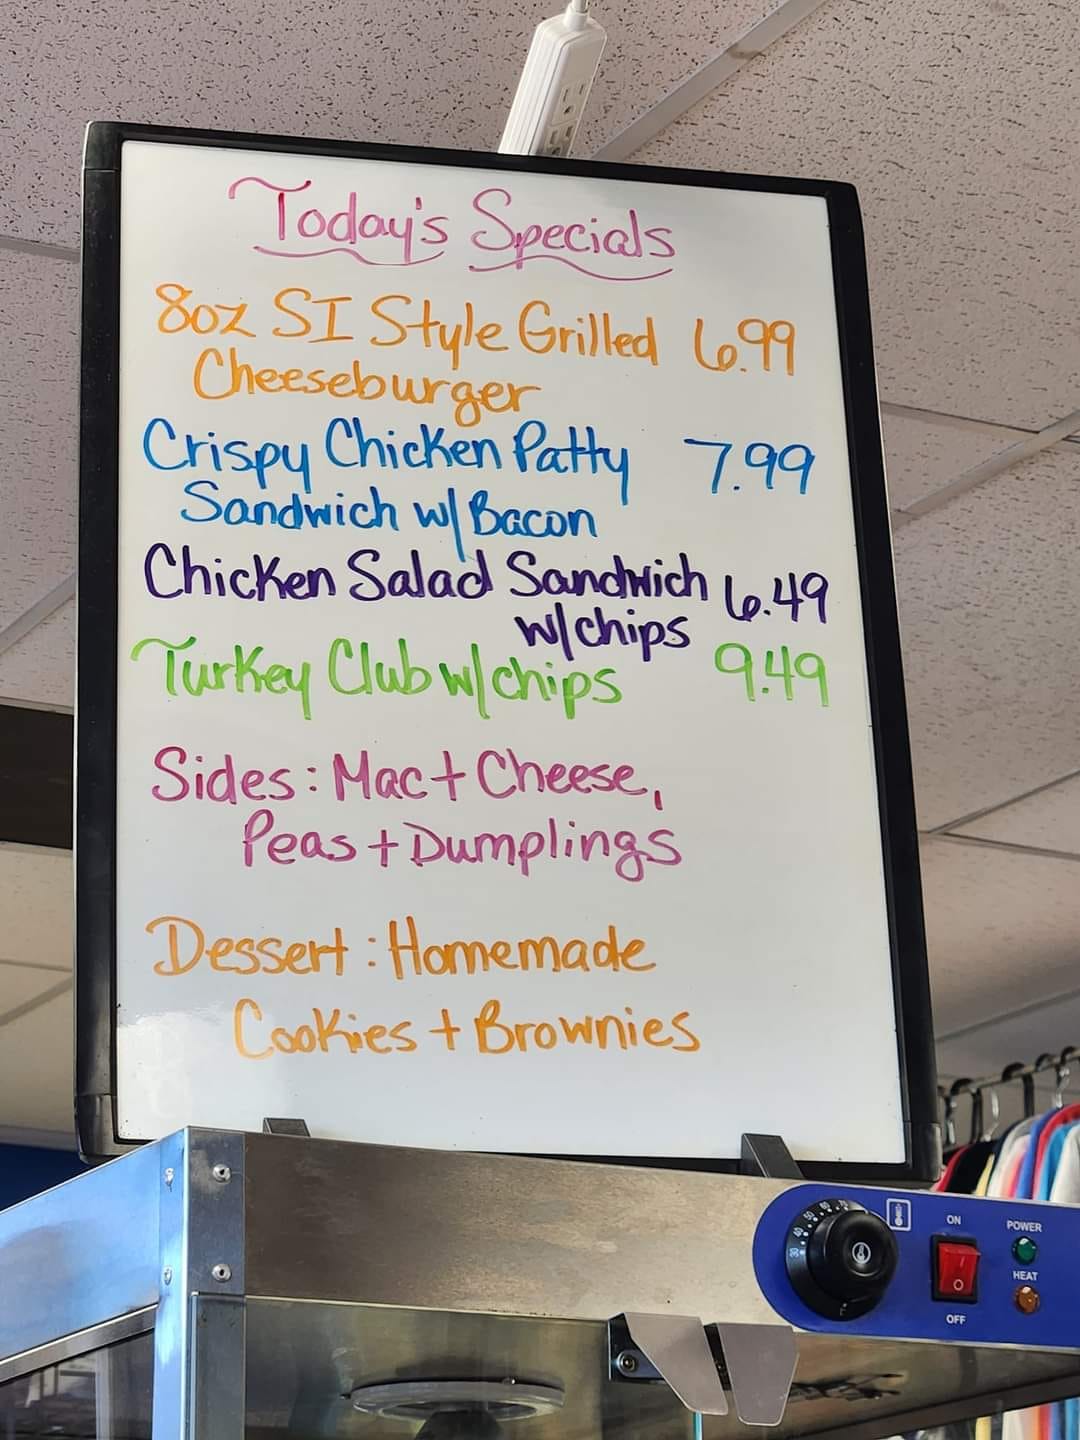 Today's Specials
8oz SI Style Grilled 6.99
Cheeseburger
Crispy Chicken Patty 7.99
Sandwich w/ Bacon
Chicken Salad Sandwich 6.49
w/chips
Turkey Club w/chips 9.49
Sides: Mac + Cheese,
Peas + Dumplings
Dessert: Homemade
Cookies + Brownies
ON
POWER
HEAT
OFF
30 40 50 60